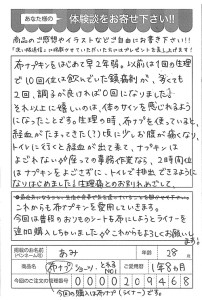 あなた様の 体験談をお寄せ下さい!!
商品のご感想やイラストなどご自由にお書き下さい!!
布ナプキンをはじめて早2年弱。以前は1回の生理
で10回位は飲んでいた鎮痛剤が、多くても
2回、調子が良ければ0回になりました!
それ以上に嬉しいのは、体のサインを感じれるように
なったことです。生理の時、布ナプを使っていると、
経血がたまってきた(?)頃に少しお腹が痛くなり、
トイレに行くと経血が出て来て、ナプキンは
よごれない♪座っての事務作業なら、2時間位
はナプキンをよごさずに、トイレで排出できるように
なりはじめました!生理とのお別れめざして、
これからも布ナプキンを愛用していきます。
今回は普段のおりものシートも布にしようとライナーを
追加購入しちゃいました♪これからもよろしくお願い
します。
掲載時のお名前
(ペンネーム可)
あみ
年齢
28歳
商品名
布ナプ
1年8ヶ月
今回のご注文の情報番号
0000209468
今回の購入は布ナプ(ライナー)です。